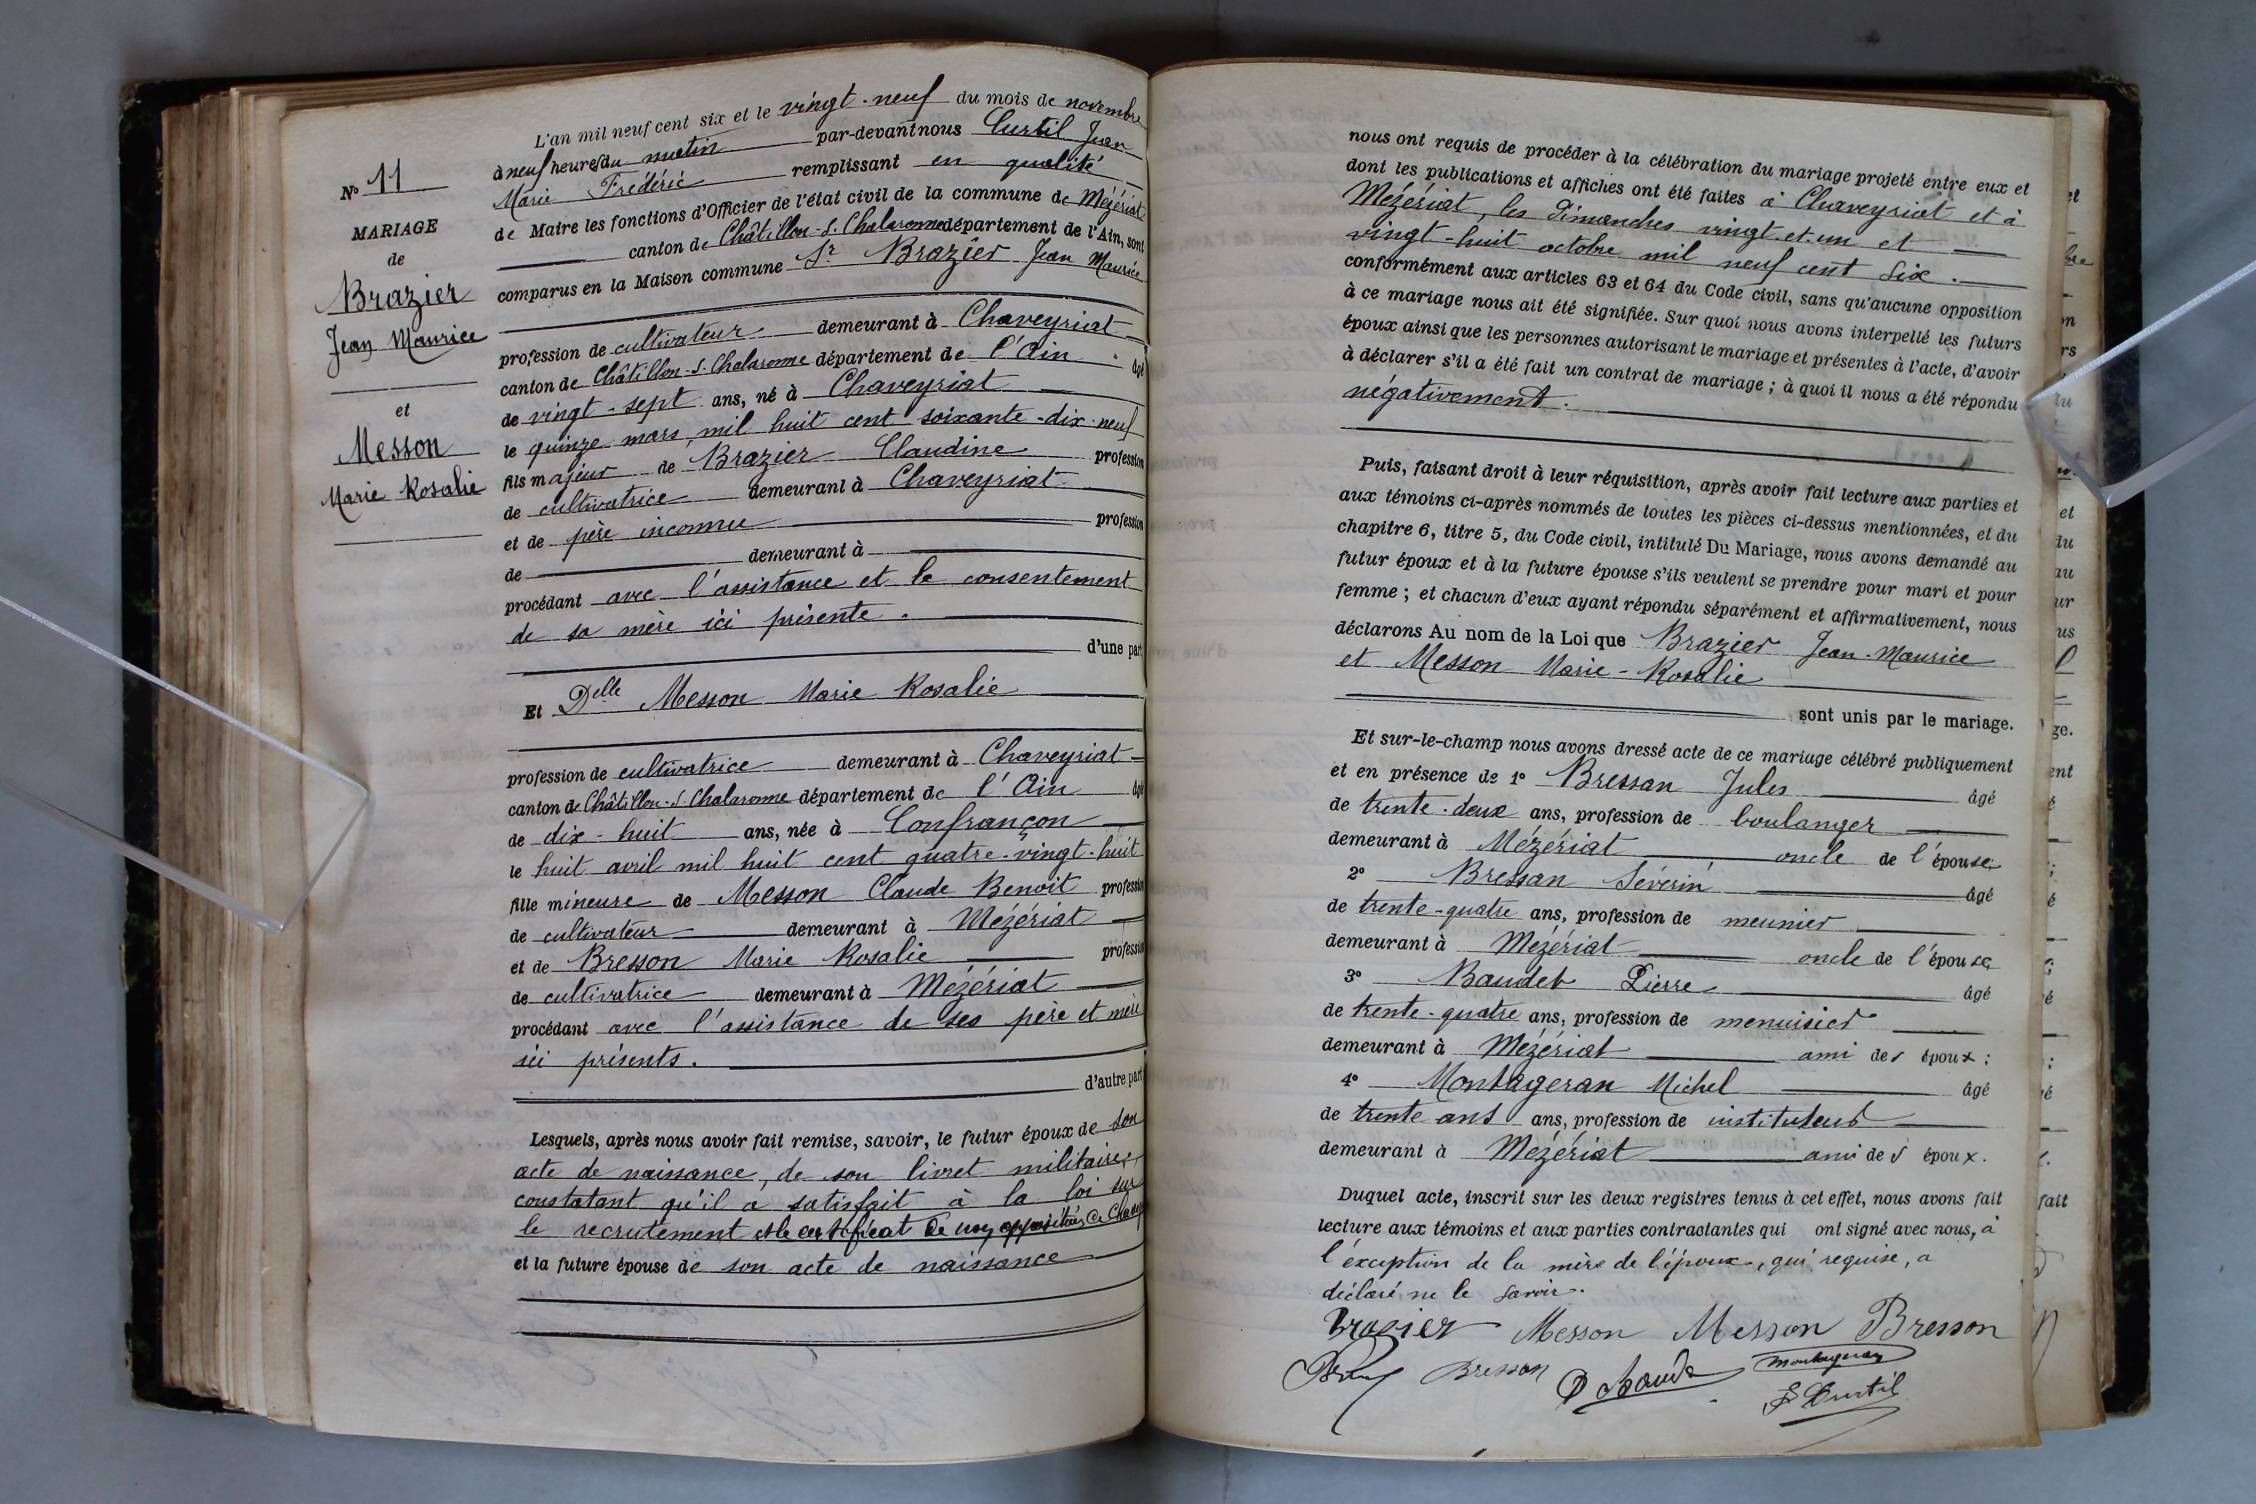 N° 11
MARIAGE
de
Brazier
Jean Maurice
et
Messon
Marie Rosalie
L'an mil neuf cent six et le vingt-neuf du mois de novembre
à neuf heures du matin par-devant nous Curtil Jean
Marie Frédéric remplissant en qualité
de Maire les fonctions d'Officier de l'état civil de la commune de Mézériat
canton de Châtillon-s.-Chalaronne département de l'Ain, sont
comparus en la Maison commune Sr Brazier Jean Maurice
profession de cultivateur demeurant à Chaveyriat
canton de Châtillon-s.-Chalaronne département de l'Ain âgé
de vingt-sept ans, né à Chaveyriat
le quinze mars, mil huit cent soixante-dix-neuf
fils majeur de Brazier Claudine profession
de cultivatrice demeurant à Chaveyriat
et de père inconnu profession
de demeurant à
procédant avec l'assistance et le consentement
de sa mère ici présente.
d'une part
Et Delle Messon Marie Rosalie
profession de cultivatrice demeurant à Chaveyriat
canton de Châtillon-s.-Chalaronne département de l'Ain âgé
de dix-huit ans, née à Confrançon
le huit avril mil huit cent quatre-vingt-huit
fille mineure de Messon Claude Benoit profession
de cultivateur demeurant à Mézériat
et de Bresson Marie Rosalie profession
de cultivatrice demeurant à Mézériat
procédant avec l'assistance de ses père et mère
ici présents.
d'autre part
Lesquels, après nous avoir fait remise, savoir, le futur époux de son
acte de naissance, de son livret militaire,
constatant qu'il a satisfait à la loi sur
le recrutement et le certificat de non opposition de
et la future épouse de son acte de naissance
nous ont requis de procéder à la célébration du mariage projeté entre eux et
dont les publications et affiches ont été faites à Chaveyriat et à
Mézériat, les dimanches vingt-et-un et
vingt-huit octobre mil neuf cent six.
conformément aux articles 63 et 64 du Code civil, sans qu'aucune opposition
à ce mariage nous ait été signifiée. Sur quoi nous avons interpellé les futurs
époux ainsi que les personnes autorisant le mariage et présentes à l'acte, d'avoir
à déclarer s'il a été fait un contrat de mariage ; à quoi il nous a été répondu
négativement.
Puis, faisant droit à leur réquisition, après avoir fait lecture aux parties et
aux témoins ci-après nommés de toutes les pièces ci-dessus mentionnées, et du
chapitre 6, titre 5, du Code civil, intitulé Du Mariage, nous avons demandé au
futur époux et à la future épouse s'ils veulent se prendre pour mari et pour
femme ; et chacun d'eux ayant répondu séparément et affirmativement, nous
déclarons Au nom de la Loi que Brazier Jean-Maurice
et Messon Marie-Rosalie
sont unis par le mariage.
Et sur-le-champ nous avons dressé acte de ce mariage célébré publiquement
et en présence de 1° Bressan Jules âgé
de trente-deux ans, profession de boulanger
demeurant à Mézériat oncle de l'épouse;
2° Bressan Séverin âgé
de trente-quatre ans, profession de meunier
demeurant à Mézériat oncle de l'épouse
3° Baudet Pierre âgé
de trente-quatre ans, profession de menuisier
demeurant à Mézériat ami des époux ;
4° Montageran Michel âgé
de trente ans ans, profession de instituteur
demeurant à Mézériat ami des époux.
Duquel acte, inscrit sur les deux registres tenus à cet effet, nous avons fait
lecture aux témoins et aux parties contractantes qui ont signé avec nous, à
l'éxception de la mère de l'époux, qui requise, a
déclaré ne le savoir.
Brazier Messon Messon Bresson
Bresson Montageran
Curtil